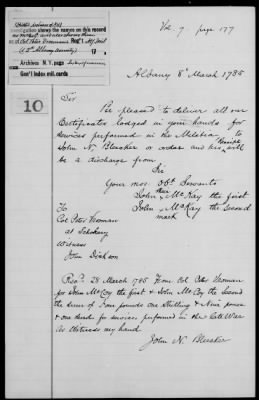 Vol. 7. page 177
investigation shows the names on this record
Col. Peter Vrooman's Regt.
(Albany County)
Archives N. Y. page
Gen'l Index mil. cards
10
Albany 8th March 1785
Sir
Be pleased to deliver all our
Certificates lodged in your hands for
services performed in the Militia to
John N. Bleeker or order and his Receipt will
be a discharge from
Sir
Your mos Obt Servants
John their McKay the first
To John McKay the Second
mark
Col Peter Vrooman
at Schohary
Witness
John Dickson
Recd 28 March 1785 From Col Peter Vroman
for John McCoy the first & John McCoy the Second
the sum of Four pounds one Shilling & Nine pence
& one third for services performed in the late War
As Witness my hand
John N. Bleeker